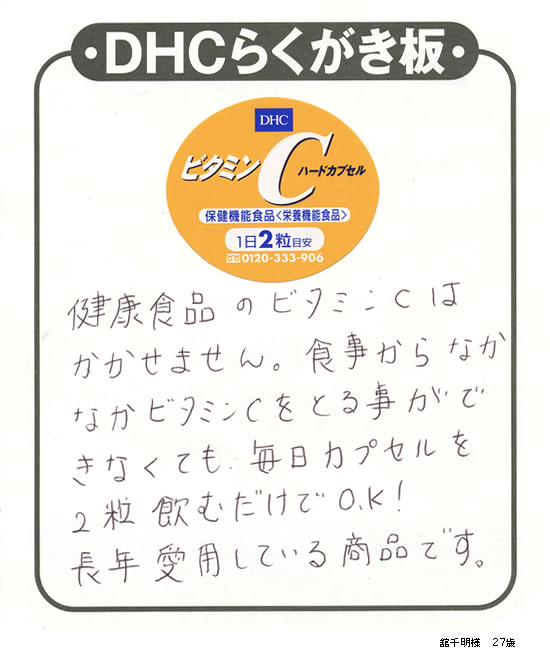 ・DHCらくがき板・
DHC
ビタミンC
ハードカプセル
保健機能食品<栄養機能食品>
1日2粒目安
0120-333-906
健康食品のビタミンCは
かかせません。食事からなか
なかビタミンCをとる事がで
きなくても、毎日カプセルを
2粒飲むだけでO.K!
長年愛用している商品です。
舘千明様 27歳